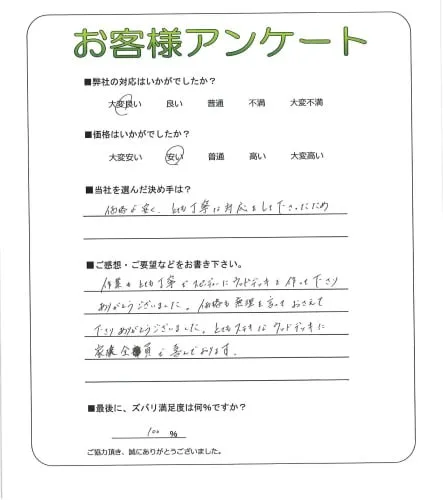 お客様アンケート
■弊社の対応はいかがでしたか?
大変良い 良い 普通 不満 大変不満
■価格はいかがでしたか?
大変安い 安い 普通 高い 大変高い
■当社を選んだ決め手は?
価格が安く、とても丁寧に対応をして下さったため
■ご感想・ご要望などをお書き下さい。
作業もとても丁寧でスピーディーにウッドデッキを作って下さり
ありがとうございました。価格も無理を言っておさえて
下さりありがとうございました。とてもステキなウッドデッキに
家族全員で喜んでおります。
■最後に、ズバリ満足度は何%ですか?
100 %
ご協力頂き、誠にありがとうございました。